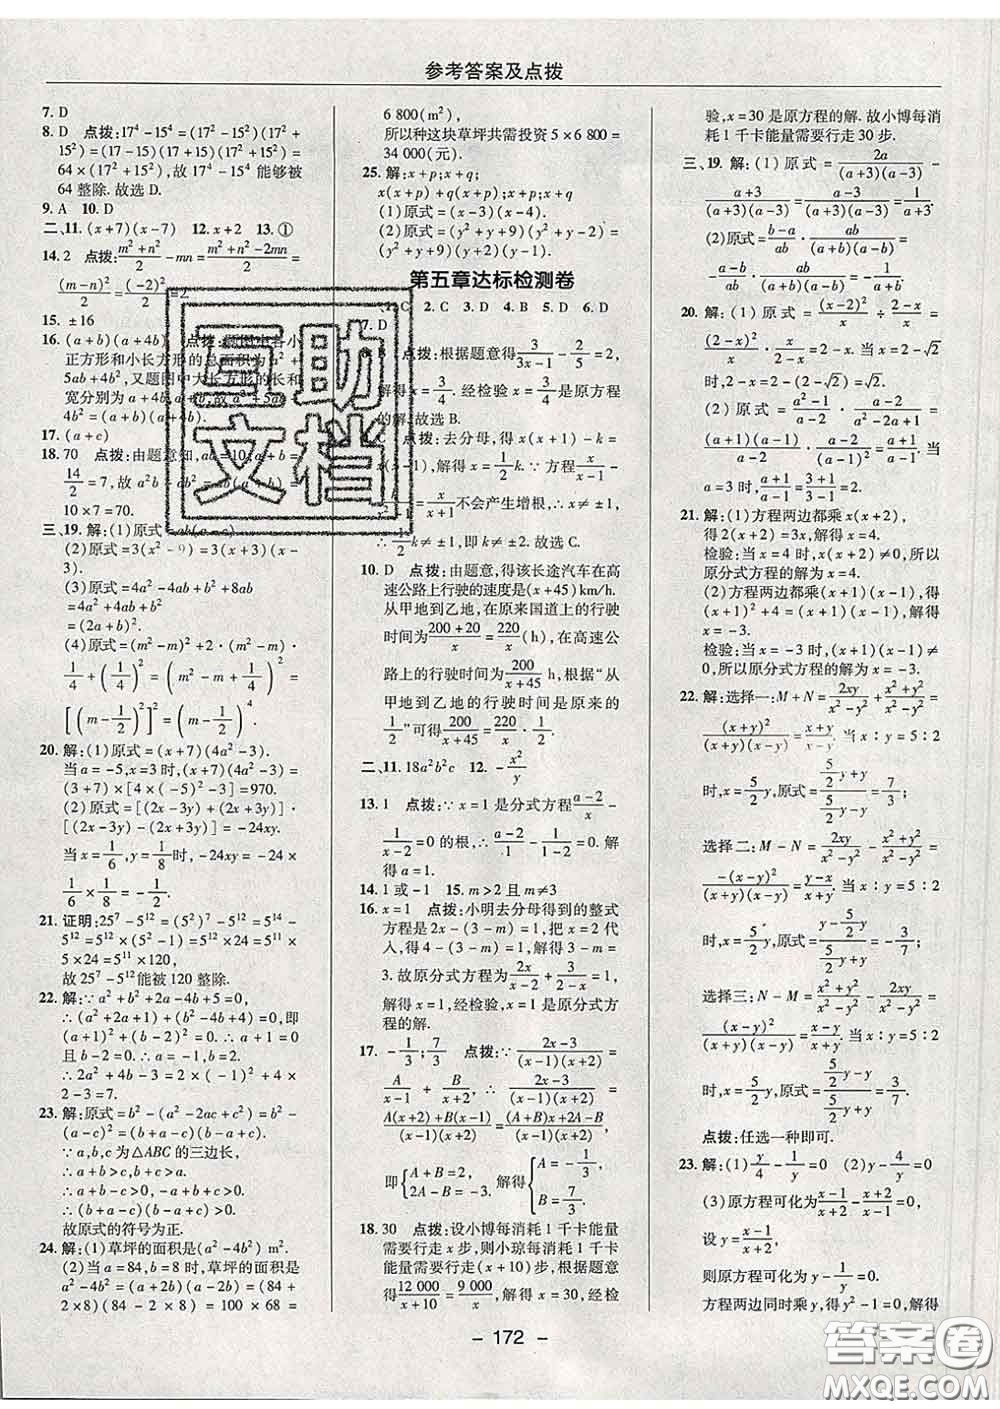 参考答案及点拨
7. D
8. D 点拨：17⁴－15⁴＝(17²－15²)(17²＋
15²)＝(17－15)(17＋15)(17²＋15²)＝
64×(17²＋15²)，故 17⁴－15⁴ 能够被
64 整除. 故选 D.
9. A 10. D
二、11. (x＋7)(x－7) 12. x＋2 13. ①
14. 2 点拨：(m²＋n²)/2－mn＝(m²＋n²－2mn)/2＝
(m－n)²/2＝(－2)²/2＝2
15. ±16
16. (a＋b)(a＋4b) 点拨：
正方形和小长方形的总面积为 a²＋
5ab＋4b²，又题图中大长方形的长和
宽分别为 a＋4b,a＋b，故 a²＋5ab＋
4b²＝(a＋b)(a＋4b).
17. (a＋c)
18. 70 点拨：由题意知，ab＝10，a＋b＝
14/2＝7，故 a²b＋ab²＝
10×7＝70.
三、19. 解：(1)原式＝ab(a－c).
(2)原式＝3(x²－9)＝3(x＋3)(x－
3).
(3)原式＝4a²－4ab＋b²＋8ab
＝4a²＋4ab＋b²
＝(2a＋b)².
(4)原式＝(m²－m)²＋2·(m²－m)·
1/4＋(1/4)²＝(m²－m＋1/4)²＝
[(m－1/2)²]²＝(m－1/2)⁴.
20. 解：(1)原式＝(x＋7)(4a²－3).
当 a＝－5,x＝3 时，(x＋7)(4a²－3)＝
(3＋7)×[4×(－5)²－3]＝970.
(2)原式＝[(2x－3y)＋(2x＋3y)]·
[(2x－3y)－(2x＋3y)]＝－24xy.
当 x＝1/6,y＝1/8时，－24xy＝－24×
1/6×1/8＝－1/2.
21. 证明：25⁷－5¹²＝(5²)⁷－5¹²＝5¹⁴－
5¹²＝5¹²×(5²－1)＝5¹²×24＝5¹¹×
5×24＝5¹¹×120，
故 25⁷－5¹²能被 120 整除.
22. 解：∵a²＋b²＋2a－4b＋5＝0，
∴(a²＋2a＋1)＋(b²－4b＋4)＝0，即
(a＋1)²＋(b－2)²＝0. ∴a＋1＝0
且 b－2＝0. ∴a＝－1,b＝2.
∴2a²＋4b－3＝2×(－1)²＋4×
2－3＝7.
23. 解：原式＝b²－(a²－2ac＋c²)＝
b²－(a－c)²＝(b＋a－c)(b－a＋c).
∵a,b,c 为△ABC 的三边长，
∴a＋b＞c,b＋c＞a.
∴a＋b－c＞0,b＋c－a＞0.
故原式的符号为正.
24. 解：(1)草坪的面积是(a²－4b²) m².
(2)当 a＝84,b＝8 时，草坪的面积是
a²－4b²＝(a＋2b)(a－2b)＝(84＋
2×8)(84－2×8)＝100×68＝
6 800(m²)，
所以种这块草坪共需投资 5×6 800＝
34 000(元).
25. 解：x＋p；x＋q；
x(x＋p)＋q(x＋p)；x＋p；x＋q
(1)原式＝(x－3)(x－4).
(2)原式＝(y²＋y＋9)(y²＋y－2)＝
(y²＋y＋9)(y＋2)(y－1).
第五章达标检测卷
1. C 2. C 3. D 4. B 5. D 6. D
7. D
8. B 点拨：根据题意得3/(3x－1)－5/2＝2，
解得 x＝3/4. 经检验 x＝3/4是原方程
的解. 故选 B.
9. C 点拨：去分母，得 x(x＋1)－k＝
x(x－1)，解得 x＝1/2k. ∵方程x/(x－1)－
＝x/(x＋1)不会产生增根，∴x≠±1，
∴1/2k≠±1，即 k≠±2. 故选 C.
10. D 点拨：由题意，得该长途汽车在高
速公路上行驶的速度是(x＋45)km/h.
从甲地到乙地，在原来国道上的行驶
时间为(200＋20)/x＝220/x(h)，在高速公
路上的行驶时间为200/(x＋45) h，根据“从
甲地到乙地的行驶时间是原来的
1/2”可得200/(x＋45)＝220/x·1/2.
二、11. 18a²b²c 12. －x²/y
13. 1 点拨：∵x＝1 是分式方程(a－2)/x－
1/(x－2)＝0 的根，∴(a－2)/1－1/(1－2)＝0. 解
得 a＝1.
14. 1 或－1 15. m＞2 且 m≠3
16. x＝1 点拨：小明去分母得到的整式
方程是 2x－(3－m)＝1，把 x＝2 代
入，得 4－(3－m)＝1，解得 3－m＝
3. 故原分式方程为2x/(x－2)＋3/(2－x)＝1，
解得 x＝1，经检验，x＝1 是原分式方
程的解.
17. －1/3；7/3 点拨：∵(2x－3)/((x－1)(x＋2))＝
A/(x－1)＋B/(x＋2)＝(2x－3)/((x－1)(x＋2))＝
(A(x＋2)＋B(x－1))/((x－1)(x＋2))＝((A＋B)x＋2A－B)/((x－1)(x＋2))，
即{A＋B＝2，2A－B＝－3，解得{A＝－1/3，B＝7/3.
18. 30 点拨：设小博每消耗 1 千卡能量
需要行走 x 步，则小琼每消耗 1 千卡
能量需要行走(x＋10)步. 根据题意
得12 000/(x＋10)＝9 000/x，解得 x＝30，经检
验，x＝30 是原方程的解. 故小博每消
耗 1 千卡能量需要行走 30 步.
三、19. 解：(1)原式＝2a/((a＋3)(a－3))－
(a＋3)/((a＋3)(a－3))＝(a－3)/((a＋3)(a－3))＝1/(a＋3).
(2)原式＝(b－a)/ab·ab/((a＋b)(a－b))＝
－(a－b)/ab·ab/((a＋b)(a－b))＝－1/(a＋b).
20. 解：(1)原式＝(x－2)²/x÷(2－x)/x＝
(2－x)²/x·x/(2－x)＝2－x. 当 x＝2－√2
时，2－x＝2－(2－√2)＝√2.
(2)原式＝(a²－1)/(a－2)·(a－2)/(a²－2a＋1)＝
((a＋1)(a－1))/(a－2)·(a－2)/(a－1)²＝(a＋1)/(a－1). 当
a＝3 时，(a＋1)/(a－1)＝(3＋1)/(3－1)＝2.
21. 解：(1)方程两边都乘 x(x＋2)，
得 2(x＋2)＝3x，解得 x＝4.
检验：当 x＝4 时，x(x＋2)≠0，所以
原分式方程的解为 x＝4.
(2)方程两边都乘(x＋1)(x－1)，得
(x＋1)²＋4＝(x＋1)(x－1)，解得
x＝－3.
检验：当 x＝－3 时，(x＋1)(x－1)≠
0，所以原分式方程的解为 x＝－3.
22. 解：选择一：M＋N＝2xy/(x²－y²)＋(x²＋y²)/(x²－y²)＝
(x＋y)²/((x＋y)(x－y))＝(x＋y)/(x－y). 当 x∶y＝5∶2
时，x＝5/2y，原式＝(5/2y＋y)/(5/2y－y)＝7/3；
选择二：M－N＝2xy/(x²－y²)－(x²＋y²)/(x²－y²)＝
－(x－y)²/((x＋y)(x－y))＝(y－x)/(x＋y). 当 x∶y＝5∶2
时，x＝5/2y，原式＝(y－5/2y)/(5/2y＋y)＝－3/7；
选择三：N－M＝(x²＋y²)/(x²－y²)－2xy/(x²－y²)＝
(x－y)²/((x＋y)(x－y))＝(x－y)/(x＋y). 当 x∶y＝5∶2
时，x＝5/2y，原式＝(5/2y－y)/(5/2y＋y)＝3/7.
点拨：任选一种即可.
23. 解：(1)y/4－1/y＝0 (2)y－4/y＝0
(3)原方程可化为(x－1)/(x＋2)－(x＋2)/(x－1)＝0，
设 y＝(x－1)/(x＋2)，
则原方程可化为 y－1/y＝0.
方程两边同时乘 y，得 y²－1＝0，解得
－ 172 －
互助
文档
答案卷
MXQE.COM